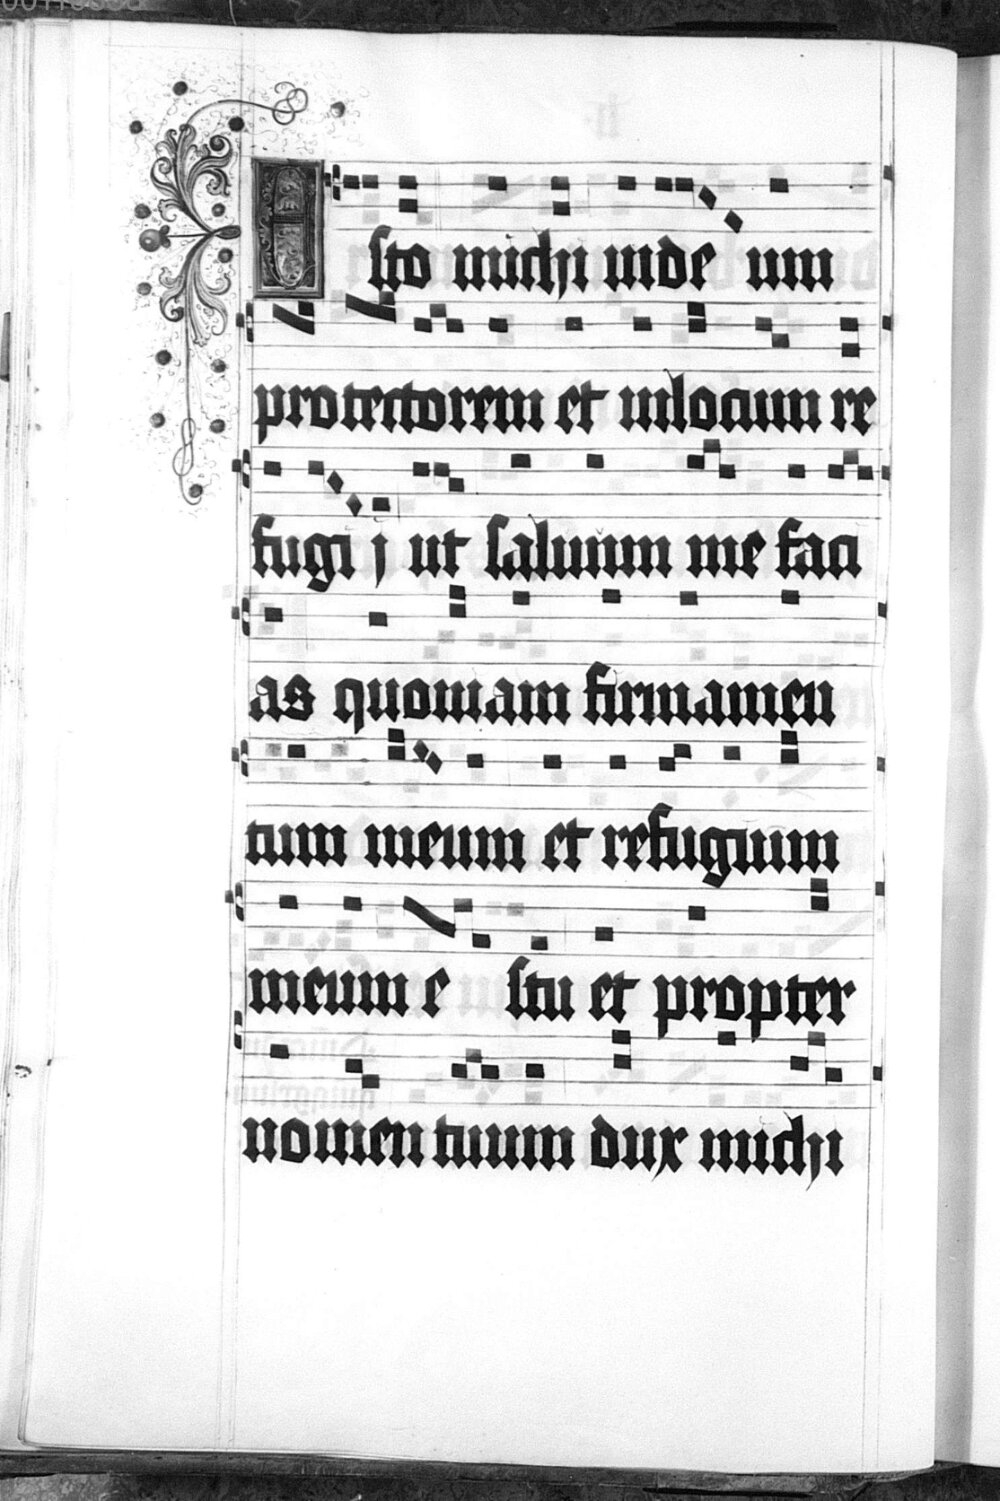 Esto michi in de um
protectorem et in locum re
fugi j ut saluum me faci
as quoniam firmamen
tum meum et refugium
meum e s tu et propter
nomen tuum dux michi